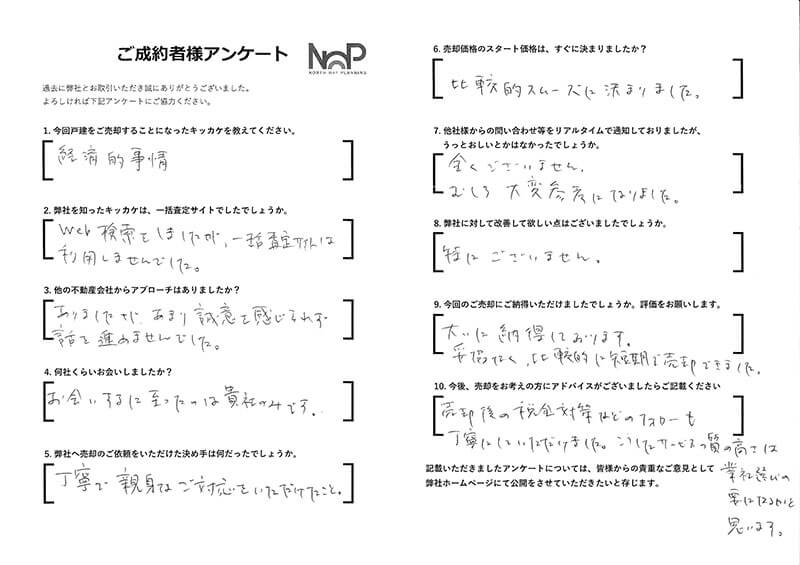 ご成約者様アンケート
NOP
NORTH WAY PLANNING
過去に弊社とお取引いただき誠にありがとうございました。
よろしければ下記アンケートにご協力ください。
1. 今回戸建をご売却することになったキッカケを教えてください。
経済的事情
2. 弊社を知ったキッカケは、一括査定サイトでしたでしょうか。
Web検索をしましたが、一括査定サイトは
利用しませんでした。
3. 他の不動産会社からアプローチはありましたか?
ありましたが、あまり誠意を感じられず
話を進めませんでした。
4. 何社くらいお会いしましたか?
お会いするに至ったのは貴社のみです。
5. 弊社へ売却のご依頼をいただけた決め手は何だったでしょうか。
丁寧で親身なご対応をいただけたこと。
6. 売却価格のスタート価格は、すぐに決まりましたか?
比較的スムーズに決まりました。
7. 他社様からの問い合わせ等をリアルタイムで通知しておりましたが、
うっとおしいとかはなかったでしょうか。
全くございません。
むしろ大変参考になりました。
8. 弊社に対して改善して欲しい点はございましたでしょうか。
特にございません。
9. 今回のご売却にご納得いただけましたでしょうか。評価をお願いします。
大いに納得しております。
妥協なく、比較的に短期で売却できました。
10. 今後、売却をお考えの方にアドバイスがございましたらご記載ください
売却後の税金対策などのフォローも
丁寧にしていただけました。こうしたサービスの質の高さは
業社選びの
要になるかと
思います。
記載いただきましたアンケートについては、皆様からの貴重なご意見として
弊社ホームページにて公開をさせていただきたいと存じます。